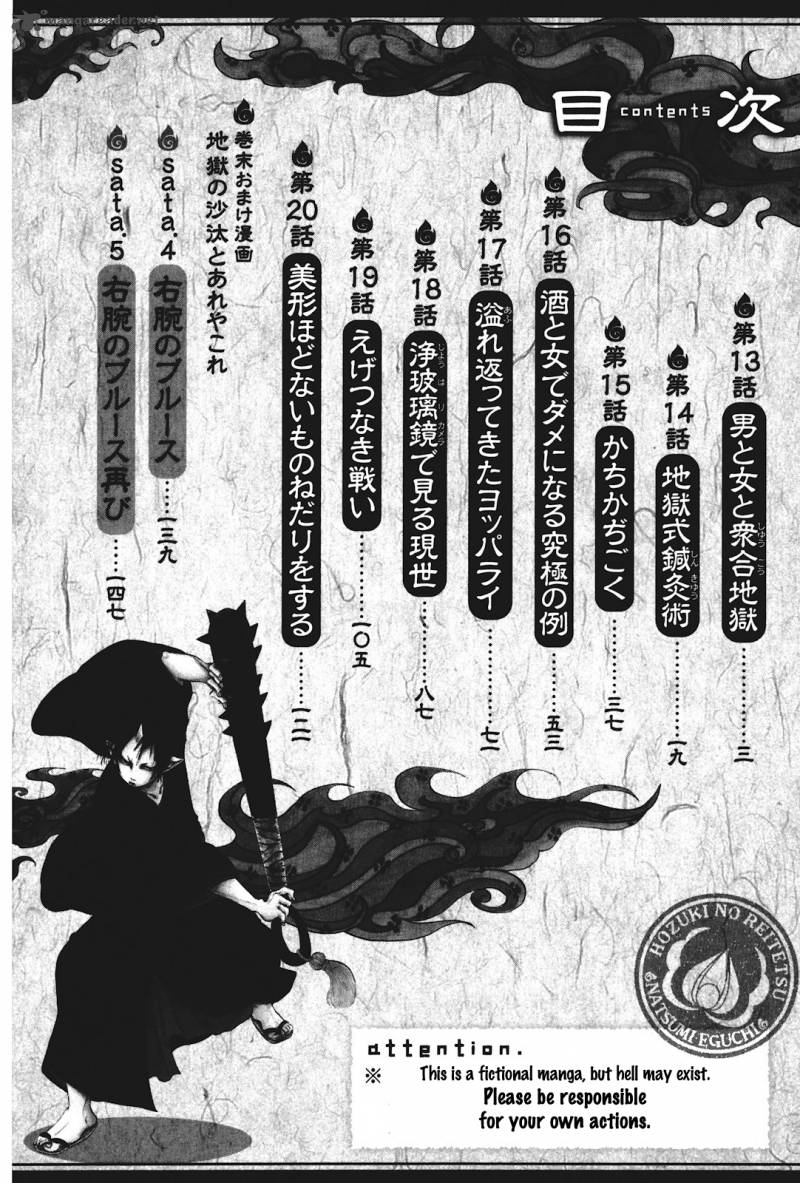 mangareader.net
目 contents 次
第13話 男と女と衆合地獄………三
しゅう ごう
第14話 地獄式鍼灸術………一九
しん きゅう
第15話 かちかぢごく………三七
第16話 酒と女でダメになる究極の例………五三
第17話 溢れ返ってきたヨッパライ………七一
あふ
第18話 浄玻璃鏡で見る現世………八七
じょう は り カメラ
第19話 えげつなき戦い………一〇五
第20話 美形ほどないものねだりをする………一二一
巻末おまけ漫画
地獄の沙汰とあれやこれ
sata.4 右腕のブルース……一三九
sata.5 右腕のブルース再び……一四七
HOZUKI NO REITETSU
NATSUMI EGUCHI
attention.
※ This is a fictional manga, but hell may exist.
Please be responsible
for your own actions.